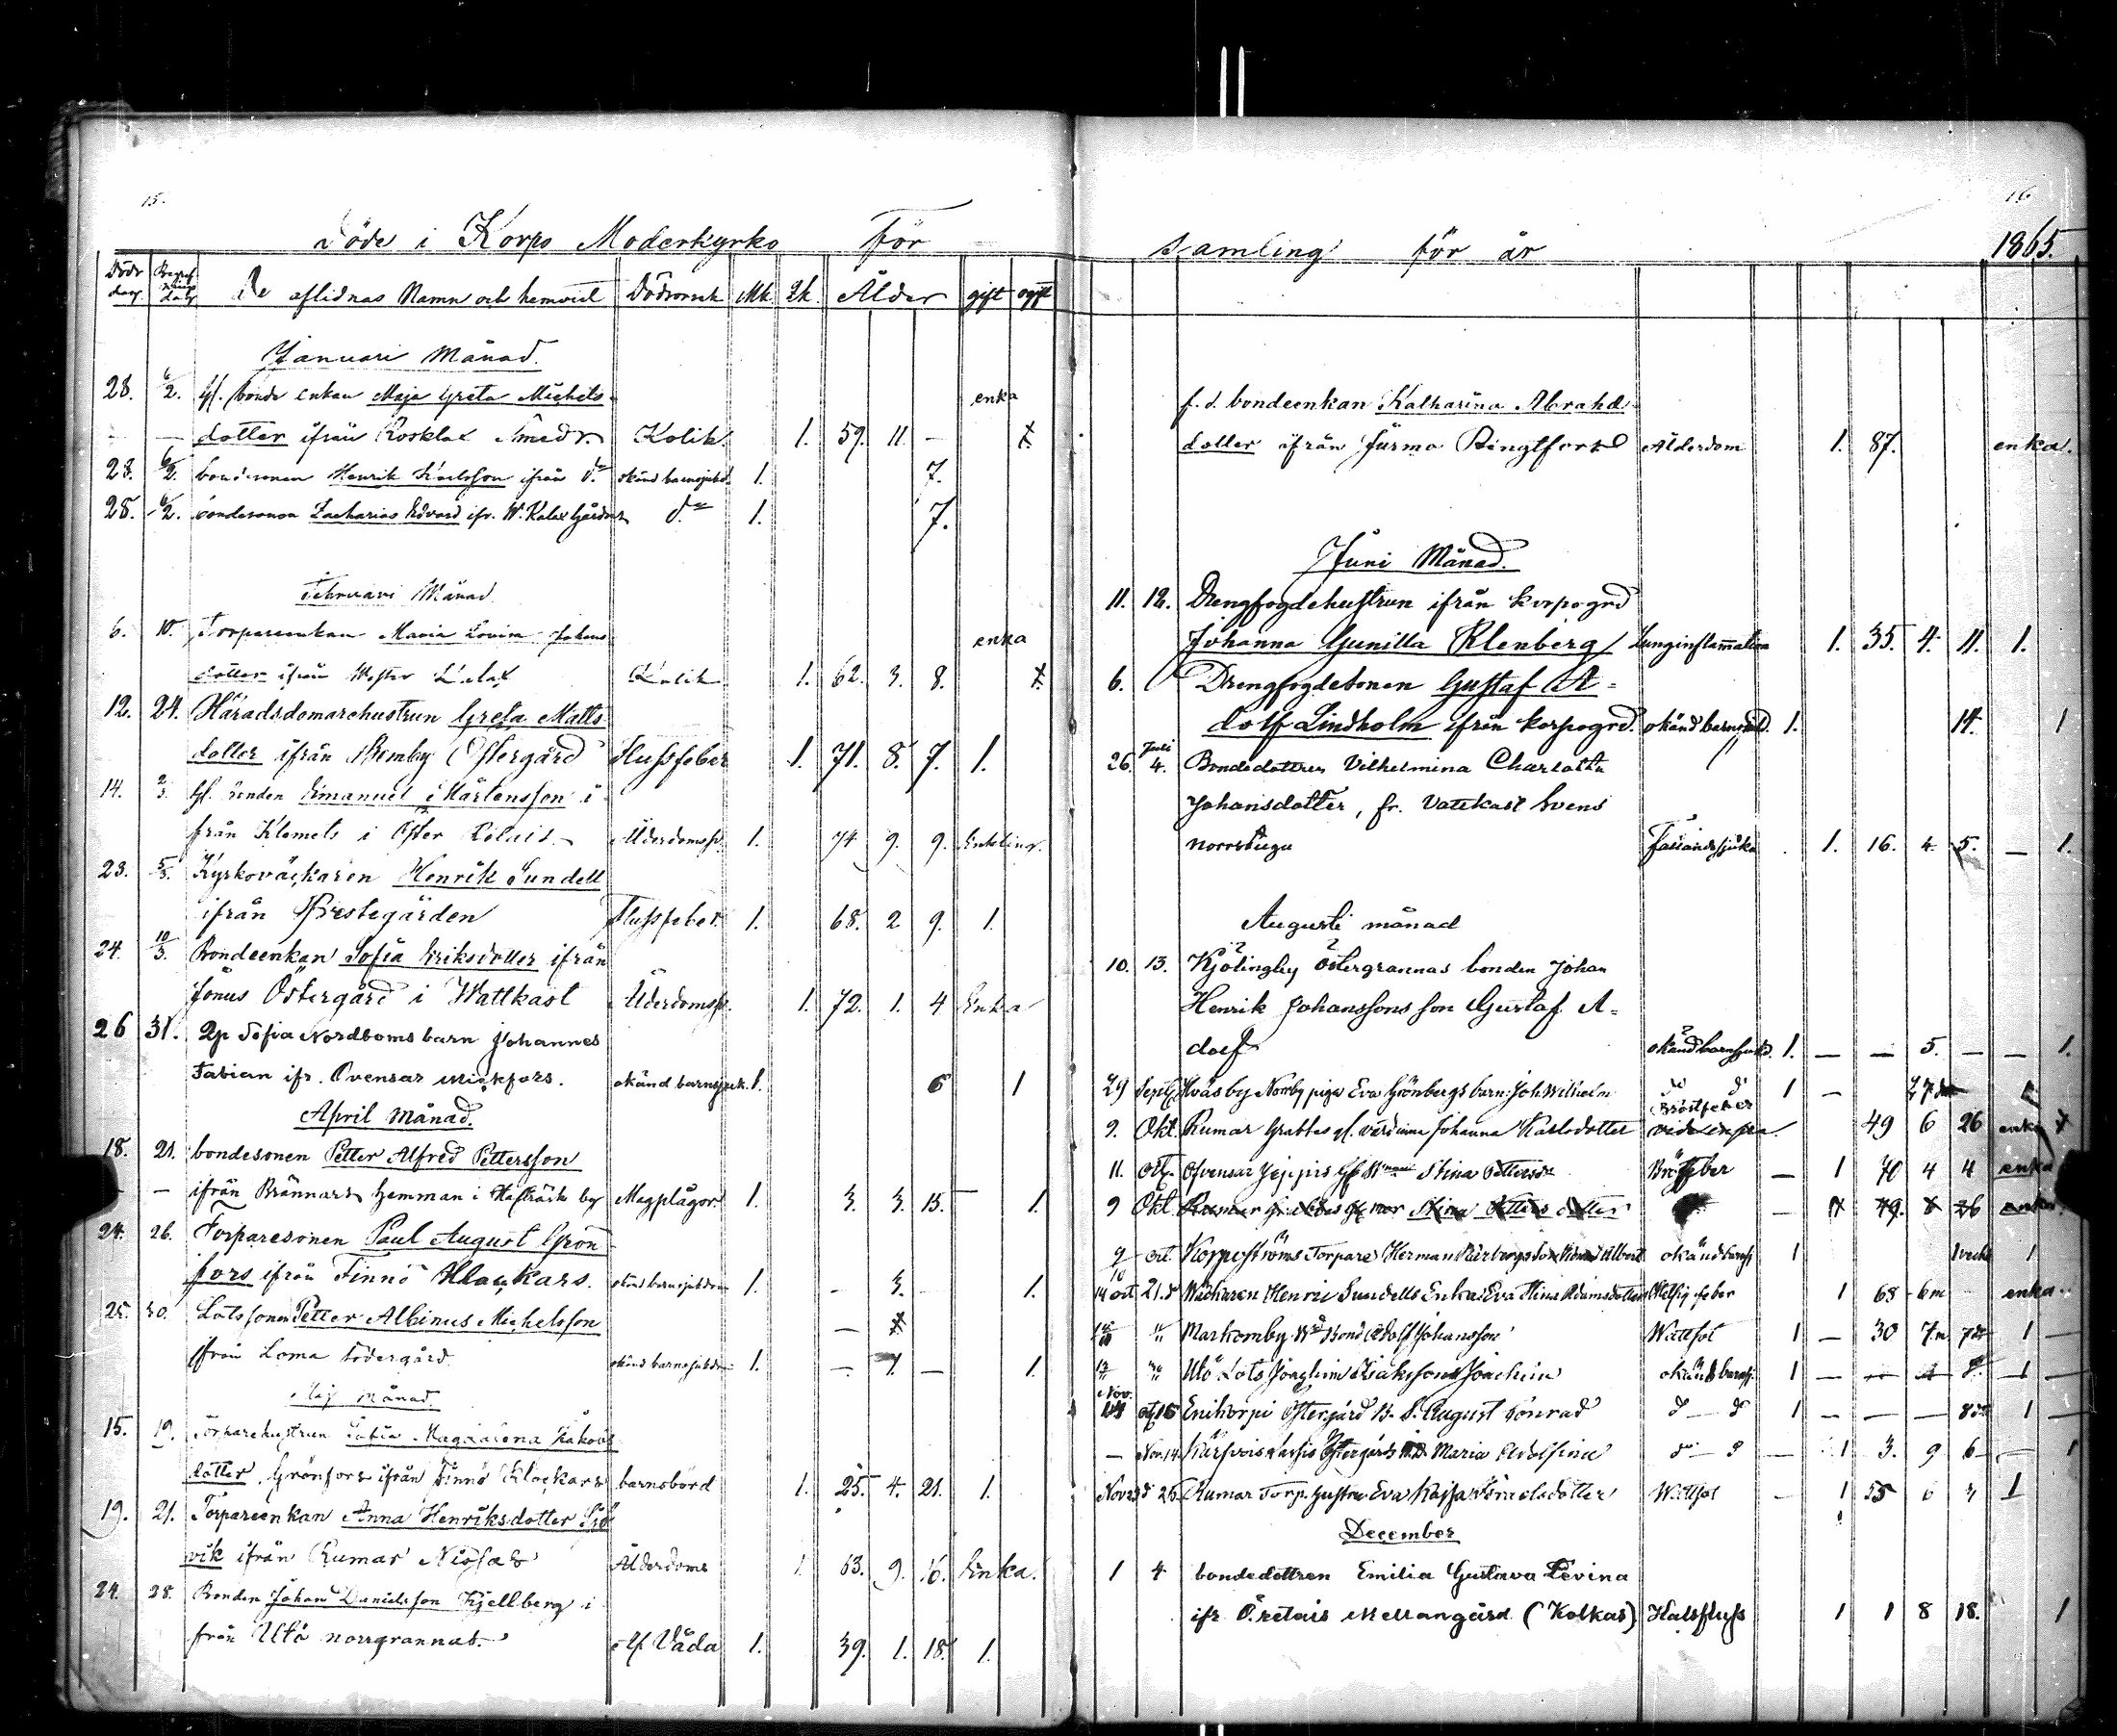 15.
Döde i Korpo Moderkyrko för
Döds dag Begrafnings dag De aflidnas Namn och hemvist Dödsorsak Mk. Qk. Ålder gift ogift
Januari Månad.
28. 6/2. gl. bonde enkan Maja Greta Michels- enka
dotter ifrån Rosklax Smeds Kolik 1. 59. 11. —
28. 6/2. bondesonen Henrik Karlsson ifrån d:o okänd barnsjukd. 1. 7.
28. 6/2. bondesonen Zacharias Edvard ifr. W. Kalax d:o 1. 7.
Februari Månad
6. 10. Torpareenkan Maria Lovisa Johans- enka
dotter ifrån Wester Kalax Kolik 1. 62. 3. 8.
12. 24. Häradsdomarehustrun Greta Matts-
dotter ifrån Remby Östergård Flussfeber 1. 71. 8. 7. 1.
14. 2/3. gl. bonden Emanuel Mårtensson i-
från Klemets i Öster Retais Ålderdomsb. 1. 74 9. 9. Enkling.
23. 5/3. Kyrkoväckaren Henrik Sundell
ifrån Prestegården Flussfeber. 1. 68. 2 9. 1.
24. 10/3. Bondeenkan Sofia Eriksdotter ifrån
Jonus Östergård i Wattkast Ålderdomsb. 1. 72. 1. 4 Enka
26 31. Qp Sofia Nordboms barn Johannes
Fabian ifr. Ovensar Mickfors. okänd barnsjuk. 1. 6 1
April Månad.
18. 21. bondesonen Petter Alfred Pettersson
— ifrån Brännars hemman i by Magplågor. 1. 3. 3. 15. 1.
24. 26. Torparesonen Paul August Grön-
fors ifrån Finnö Klockars. okänd barnsjukdom 1. — 3. — 1.
25. 30. Lotssonen Petter Albinus Michelsson
ifrån Loma Södergård. okänd barnsjukdom 1. — 1. — 1.
Maj Månad
15. 19. Torparehustrun Sofia Magdalena Jakobs-
dotter Grönfors ifrån Finnö Klockars barnsbörd 1. 25. 4. 21. 1.
19. 21. Torpareenkan Anna Henriksdotter Sjö-
vik ifrån Rumar Nissas Ålderdoms 1. 63. 9. 16. Enka.
24. 28. Bonden Johan Danielsson Kjellberg i-
från Utö norrgrannas. af Våda 1. 39. 1. 18. 1.
16
samling för år 1865.
f. d. bondeenkan Katharina Abrahd
dotter ifrån Jürmo Ålderdom 1. 87. enka.
Juni Månad.
11. 12. Drengfogdehustrun ifrån korpogrd
Johanna Gunilla Klenberg Lunginflammation 1. 35. 4. 11. 1.
6. Drengfogdesonen Gustaf A-
dolf Lindholm ifrån korpogrd. okänd barnsjukd. 1. 14. 1
26. Juli 4. Bondedottren Vilhelmina Charlotta
Johansdotter, fr. Vattkast Svens
norrstugu 1. 16. 4 5. — 1.
Augusti månad
10. 13. Kjölingby Östergrannas bonden Johan
Henrik Johanssons son Gustaf A-
dolf okänd barnsjukd. 1. — — 5. — — 1.
29 Sept. Norrby piga Eva Grönbergs barn: Joh. Wilhelm d:o d:o 1 —
9. Okt. Rumar Grabbas gl. värdinna Johanna Karlsdotter Bröstfeber 49 6 26 enka
11. oct. Ofvensar Stina Pettersdr Bröstfeber — 1 70 4 4 enka
9 Okt. Rumar Stina Petters dotter — enka
9/10 oct. Korpoströms Torpare Herman son Albert okänd barnsj. 1 1 vecka 1
14 oct 21. d Wäckaren Henric Sundells Enka Eva Stina Adamsdotter Hetsig feber 1 68 6m enka
Markomby Bond Adolf Johansson Wattsot 1 — 30 7m 1 —
Utö Lots Joachim Isakssons Joachim okänd barnsj. 1 — — 8. — 1
Nov. Österqård B. S. August Conrad d:o — d:o 1 — — — 1 —
— Nov. 14. Östergårds Maria Adolfina d:o — d:o — 1 3. 9 6 — 1
Nov 26 Rumar Torp. hustru Eva Kajsa Israelsdotter Wattsot — 1 55 1
December
1 4 bondedottren Emilia Gustava Levina
ifr Ö. retais Mellangård (Kolkas) Halsfluss 1 1 8 18. 1